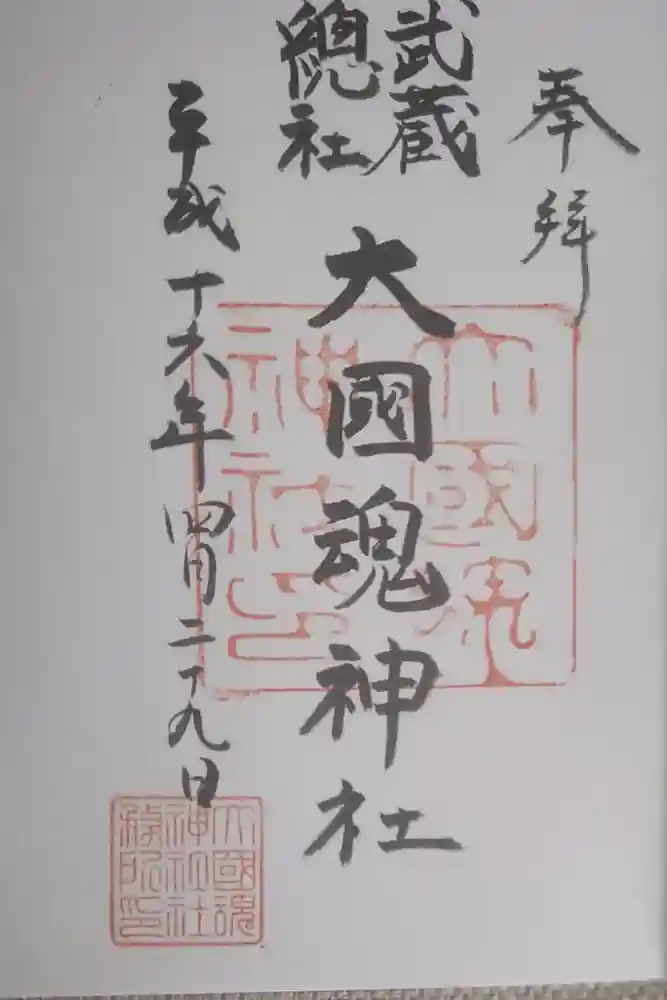 奉拝
武蔵
總社
大國魂神社
平成十六年四月二十九日
大國魂
神社印
大國魂
神社社
務所印